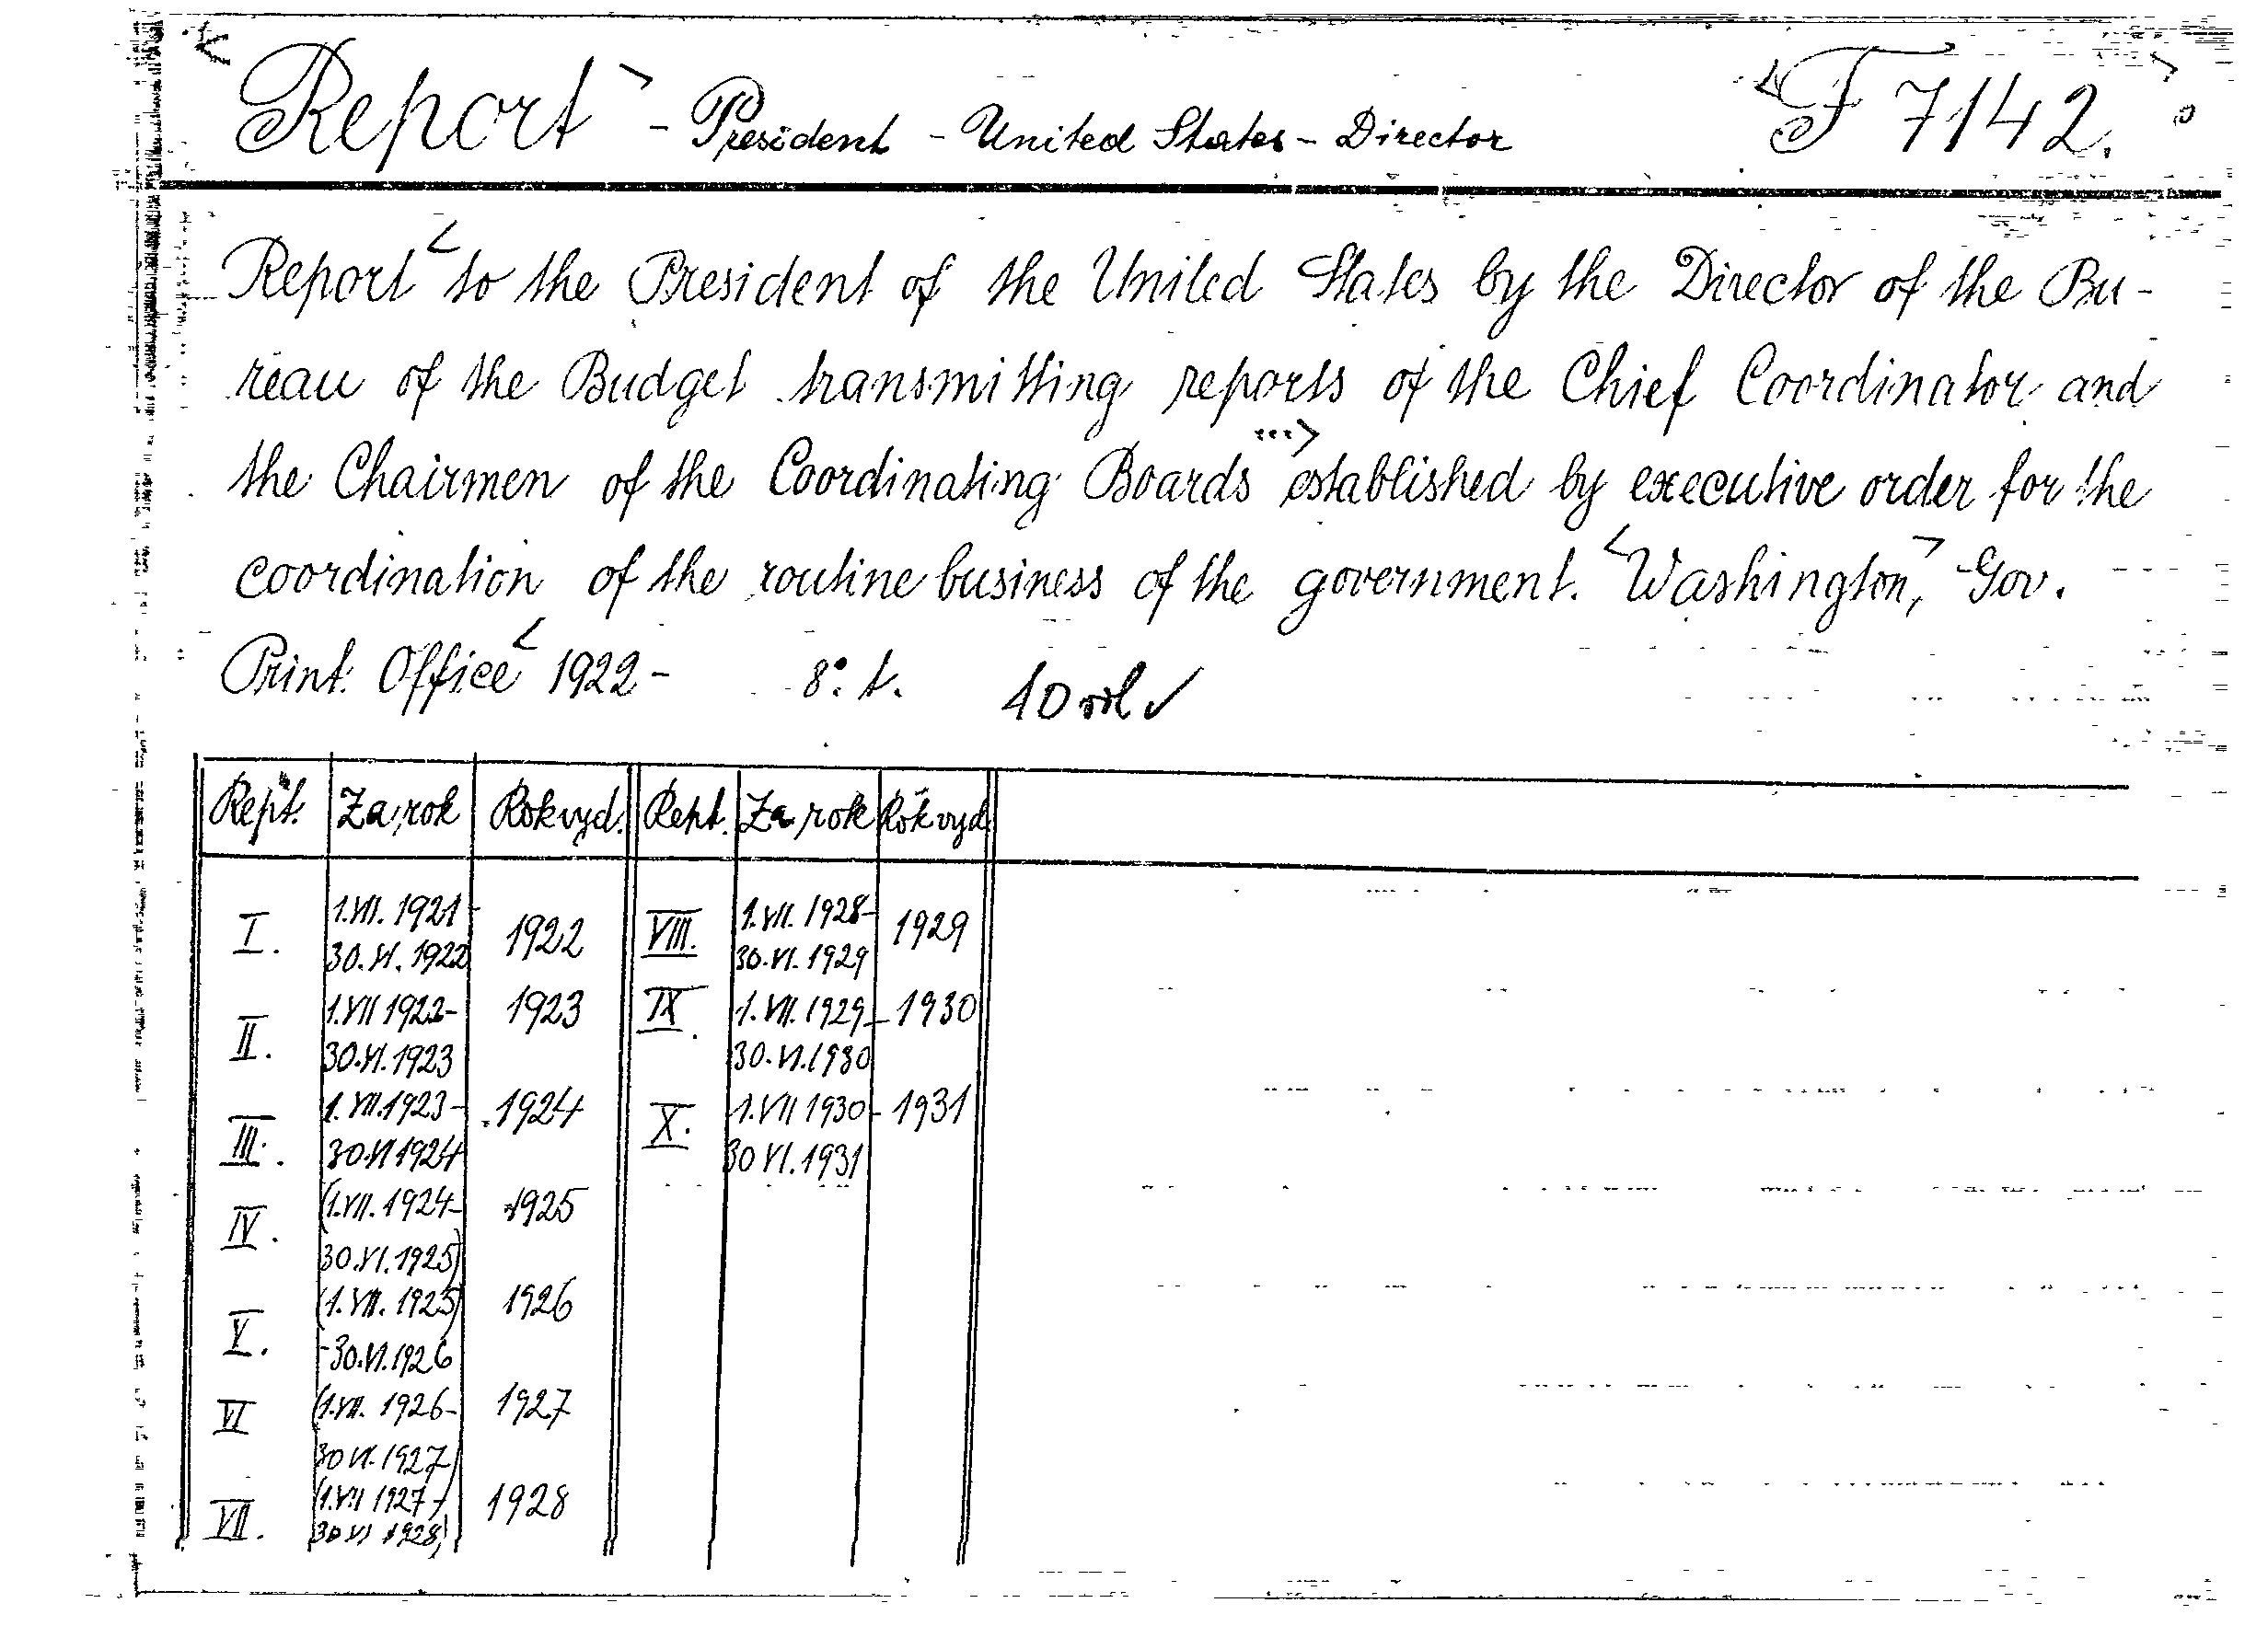 <Report> - President - United States - Director <F 7142.>
Report< to the President of the United States by the Director of the Bu-
reau of the Budget transmitting reports of the Chief Coordinator and
the Chairmen of the Coordinating Boards ...> established by executive order for the
coordination of the routine business of the government. <Washington,> Gov.
Print. Office< 1922 - 8°. t. 10 vol ✓
Rept. Za rok Rok vyd. Rept. Za rok Rok vyd.
I. 1.VII.1921- 30.VI.1922 1922 VIII. 1.VII.1928- 30.VI.1929 1929
II. 1.VII 1922- 30.VI.1923 1923 IX. 1.VII.1929- 30.VI.1930 1930
III. 1.VII.1923- 30.VI 1924 1924 X. 1.VII 1930- 30 VI.1931 1931
IV. (1.VII.1924- 30.VI.1925) 1925
V. (1.VII.1925) -30.VI.1926 1926
VI (1.VII.1926- 30 VI.1927) 1927
VII. (1.VII 1927- 30 VI 1928) 1928